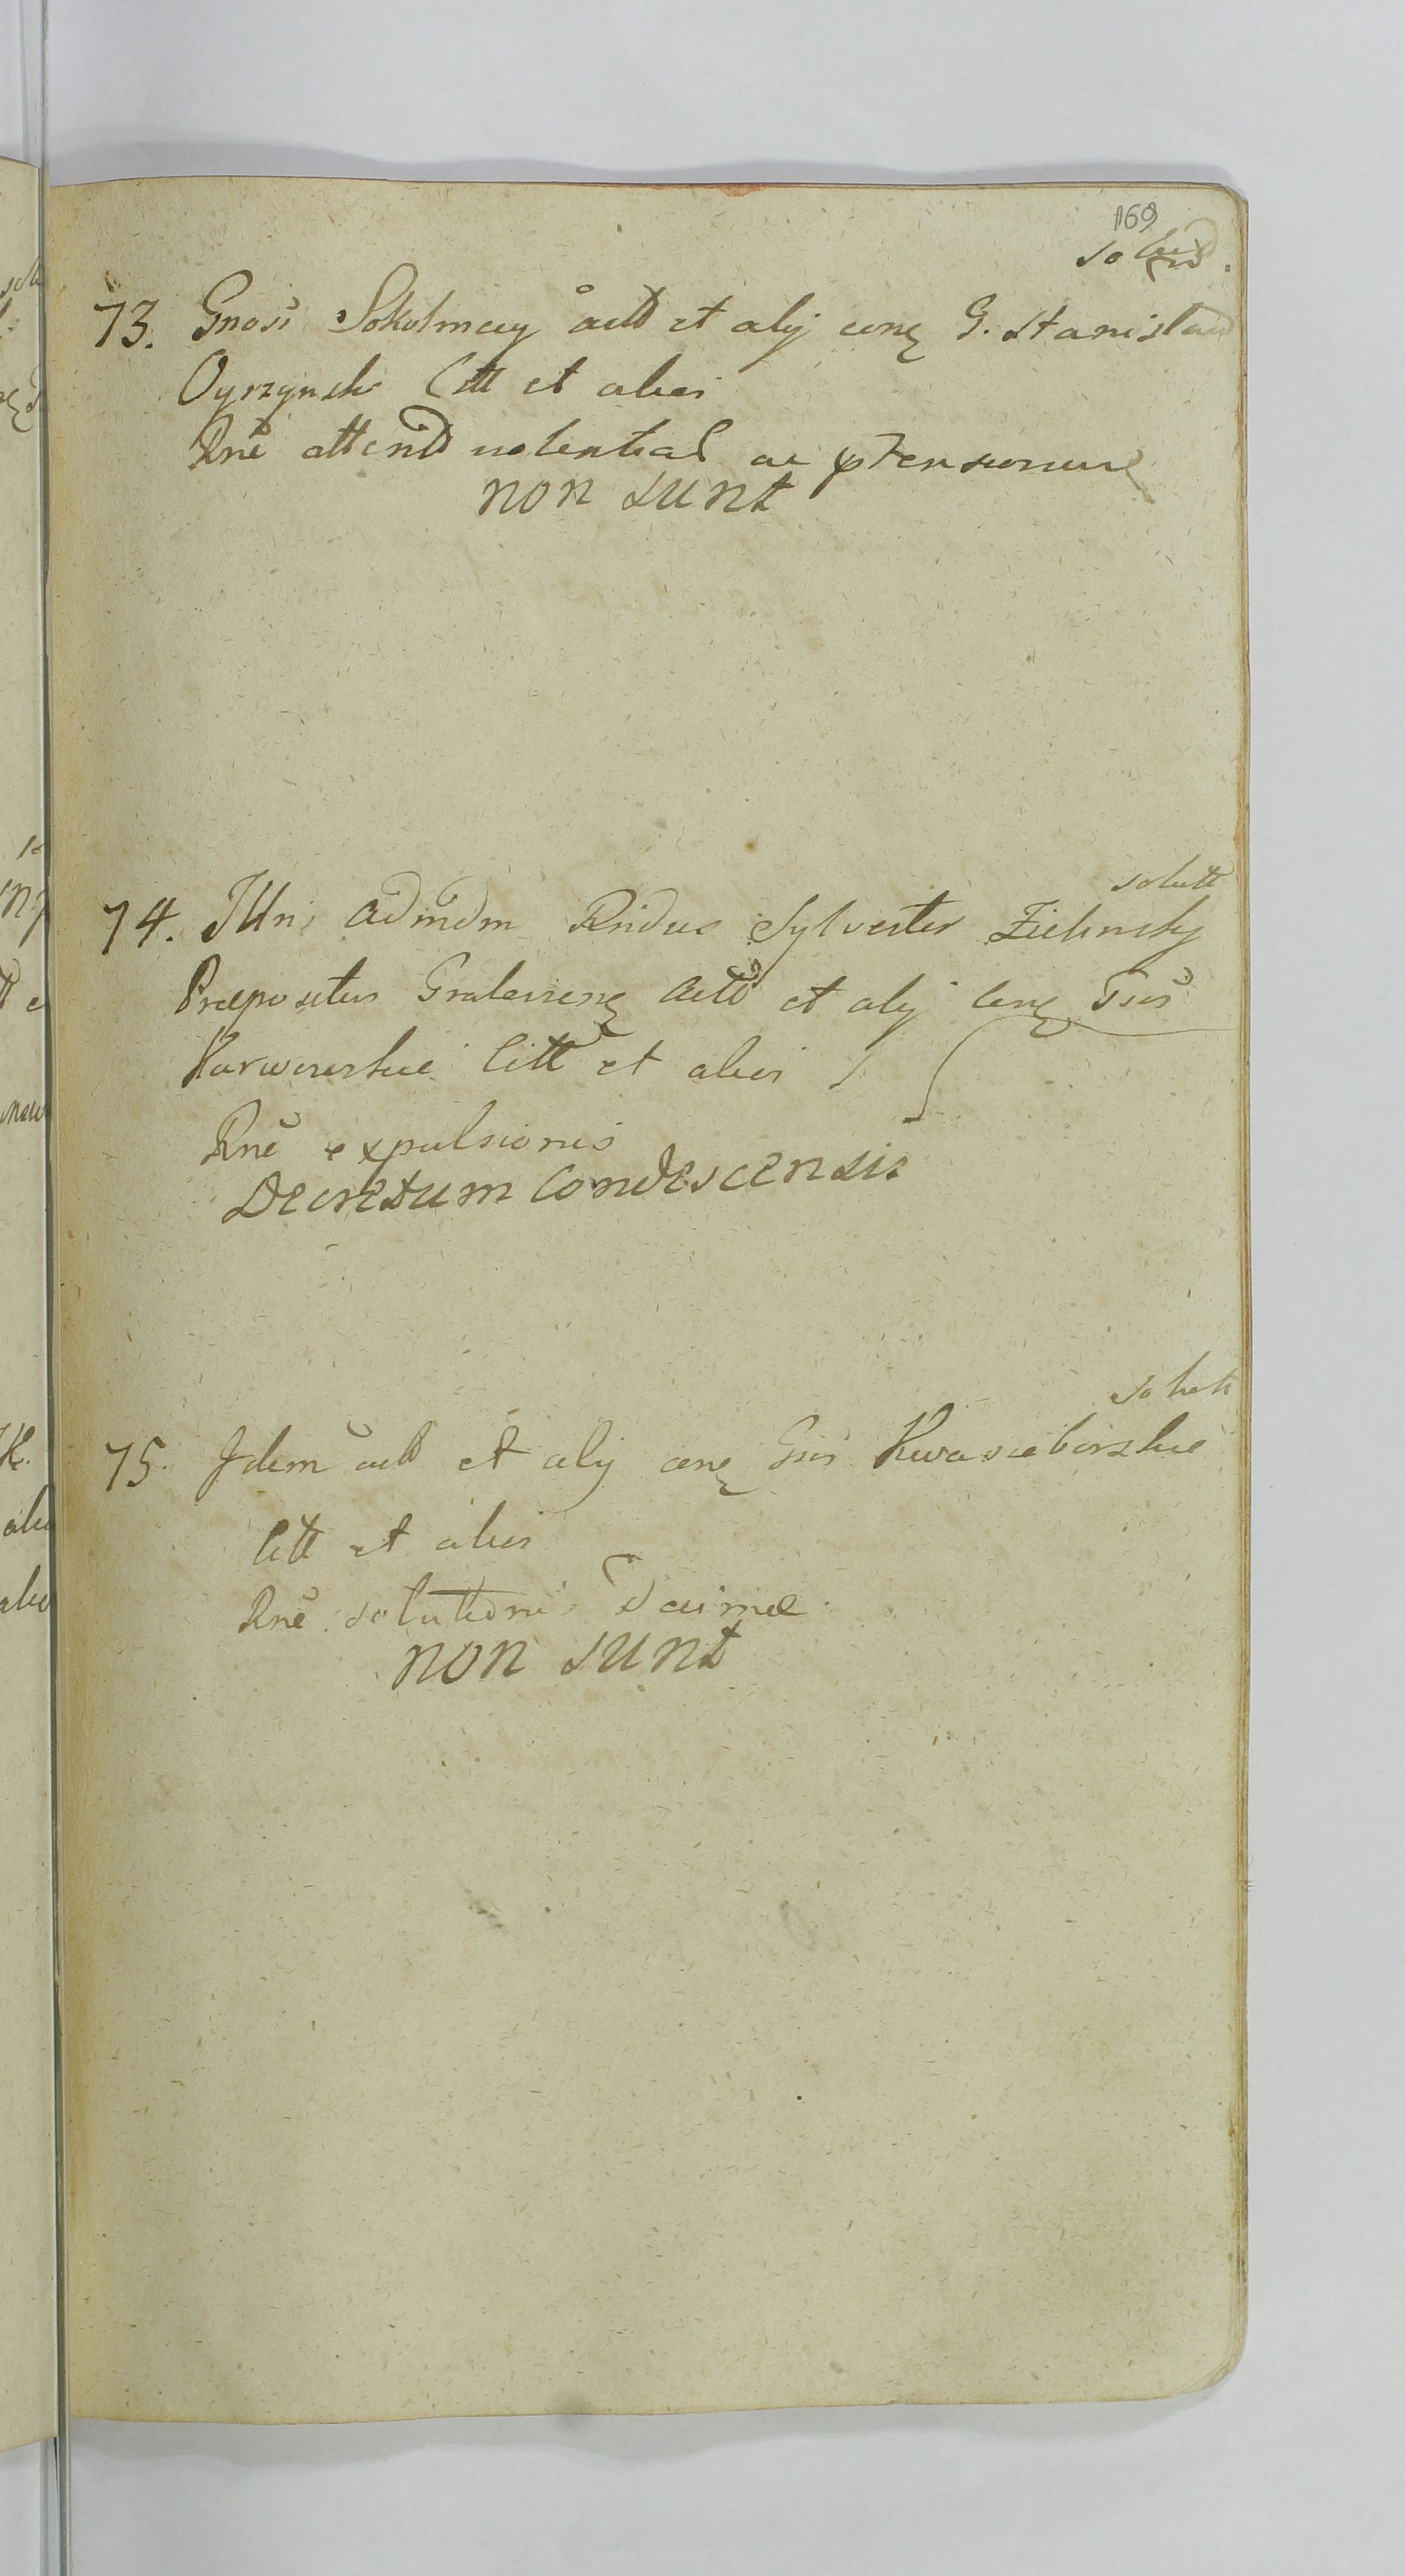 169
solvit
73. Gnosi Sokolnicy actt et alij conq G. Stanislau
Oyrzynski Citt et alios
Rne attentt ac ptensionum
non sunt
solutt
74. Illris admdm Rndus Sylvester Zielinsky
Præpositus Actt et alij conq Gsos
Karwowskie Citt et alios
Rne expulsionis
Decretum Condescensis
solutt
75. Idem actt et alij conq Gsos Kwasieborskie
Citt et alios
Rne solutionis Decimæ
non sunt